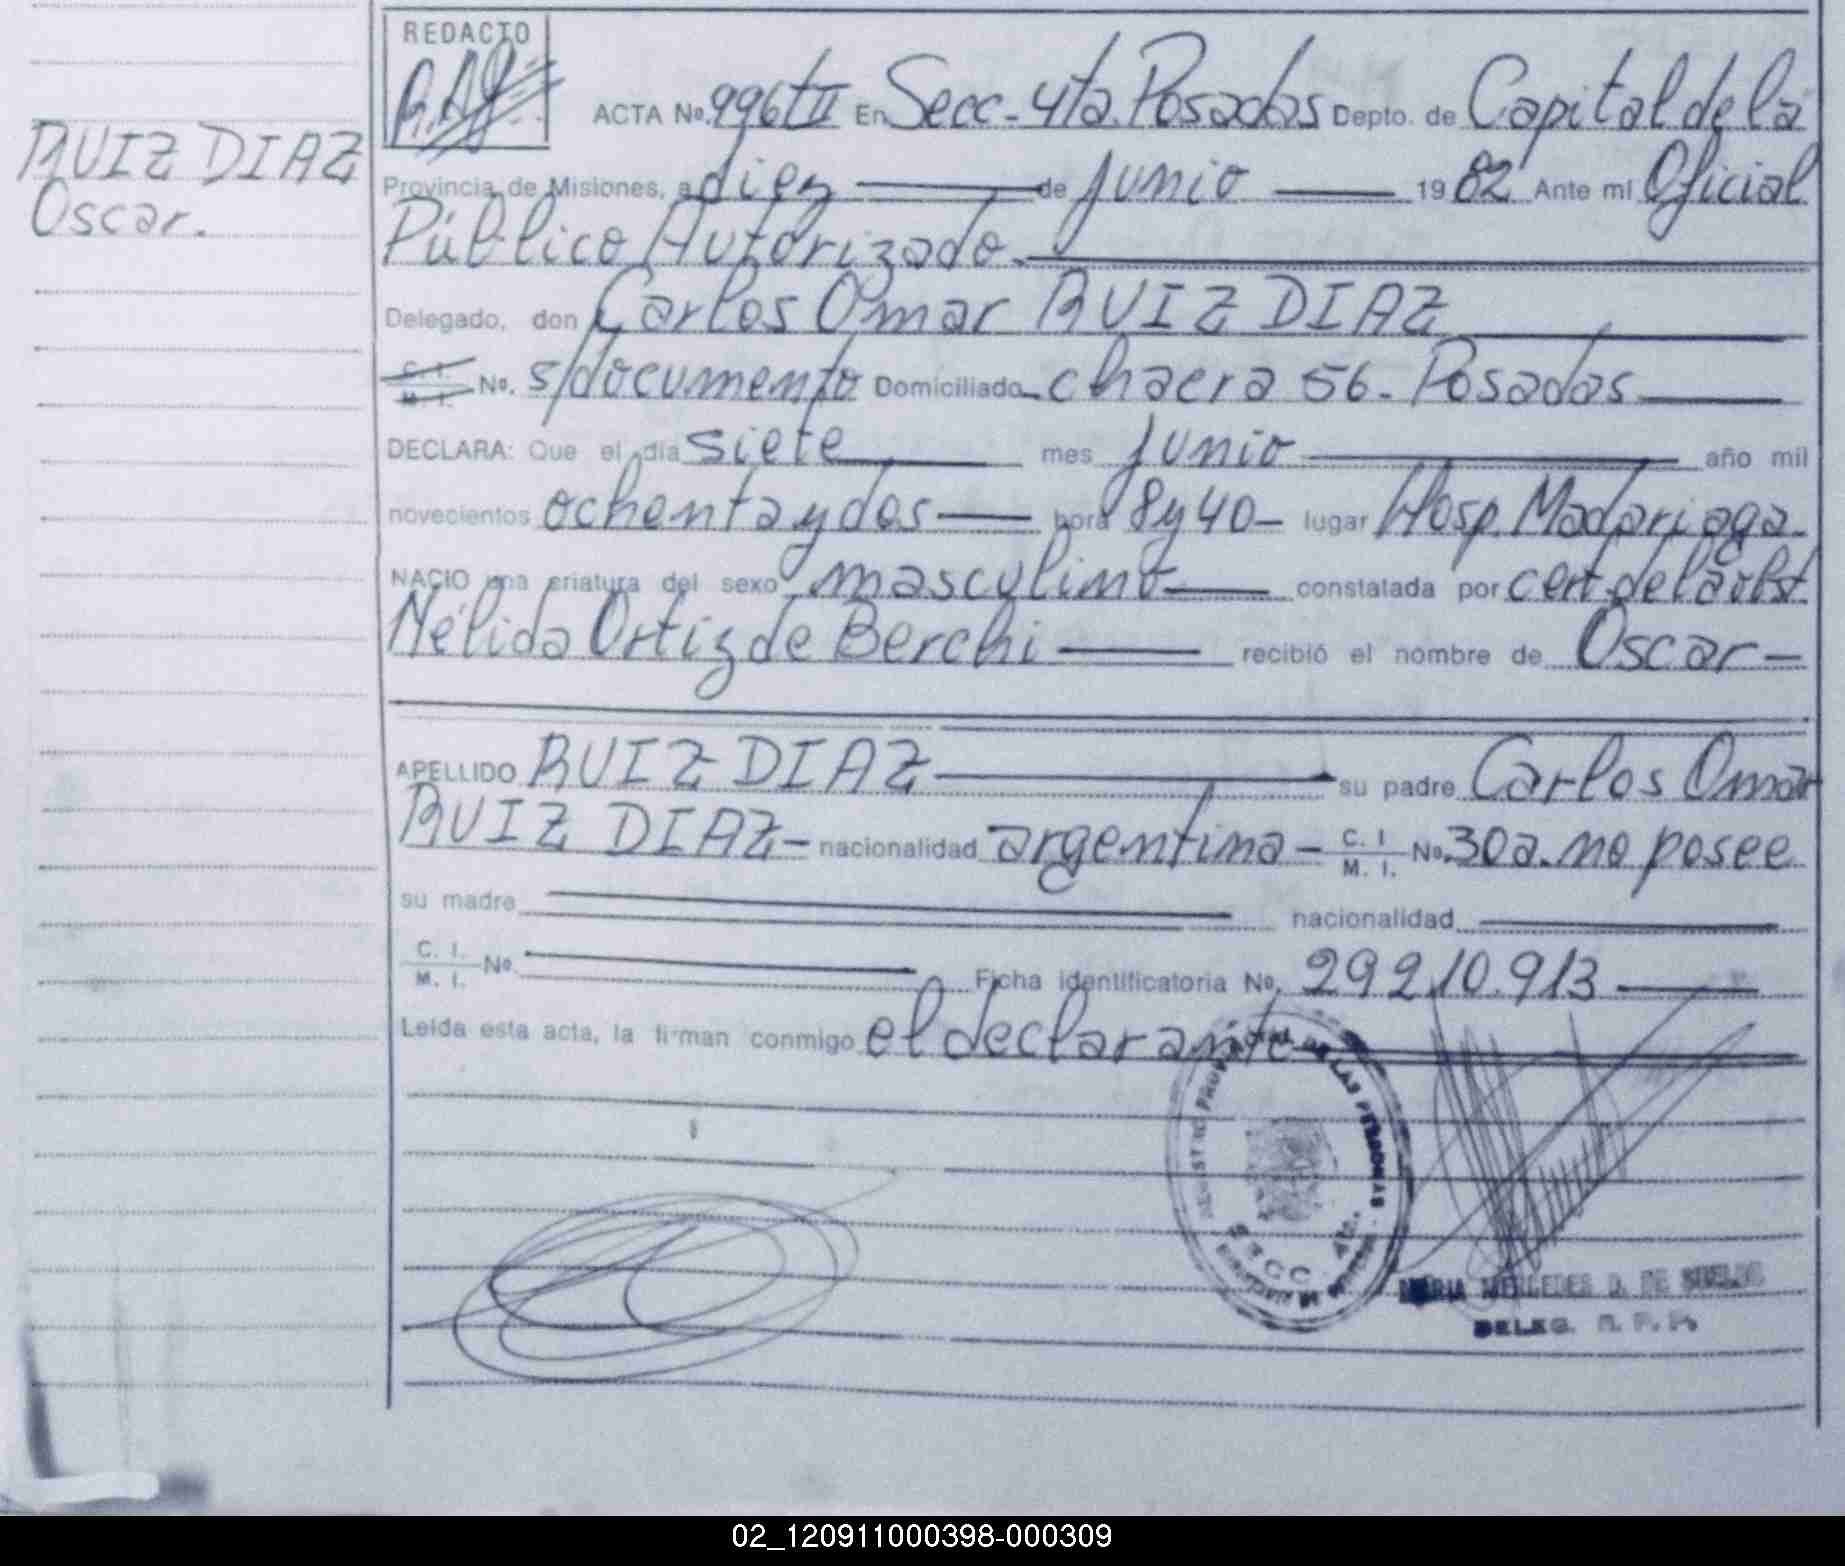 REDACTO
RUIZ DIAZ
Oscar.
ACTA No. 996 tII En Secc. 4ta. Posadas Depto. de Capital de la
Provincia de Misiones, a diez de junio 1982 Ante mi Oficial
Público Autorizado.
Delegado, don Carlos Omar RUIZ DIAZ
C. I. M. I. No. s/documento Domiciliado chacra 56. Posadas
DECLARA: Que el día siete mes junio año mil
novecientos ochenta y dos hora 8 y 40 lugar Hosp. Madariaga.
NACIO una criatura del sexo masculino constatada por cert. de la obst.
Nélida Ortiz de Berchi recibió el nombre de Oscar
APELLIDO RUIZ DIAZ su padre Carlos Omar
RUIZ DIAZ nacionalidad argentina C. I. M. I. No. 30a. no posee
su madre nacionalidad
C. I. M. I. No. Ficha identificatoria No. 29210.913
Leída esta acta, la firman conmigo el declarante
REGISTRO PROVINCIAL DE LAS PERSONAS
MARIA MERCEDES D. DE
DELEG. R. P. P.
02_120911000398-000309